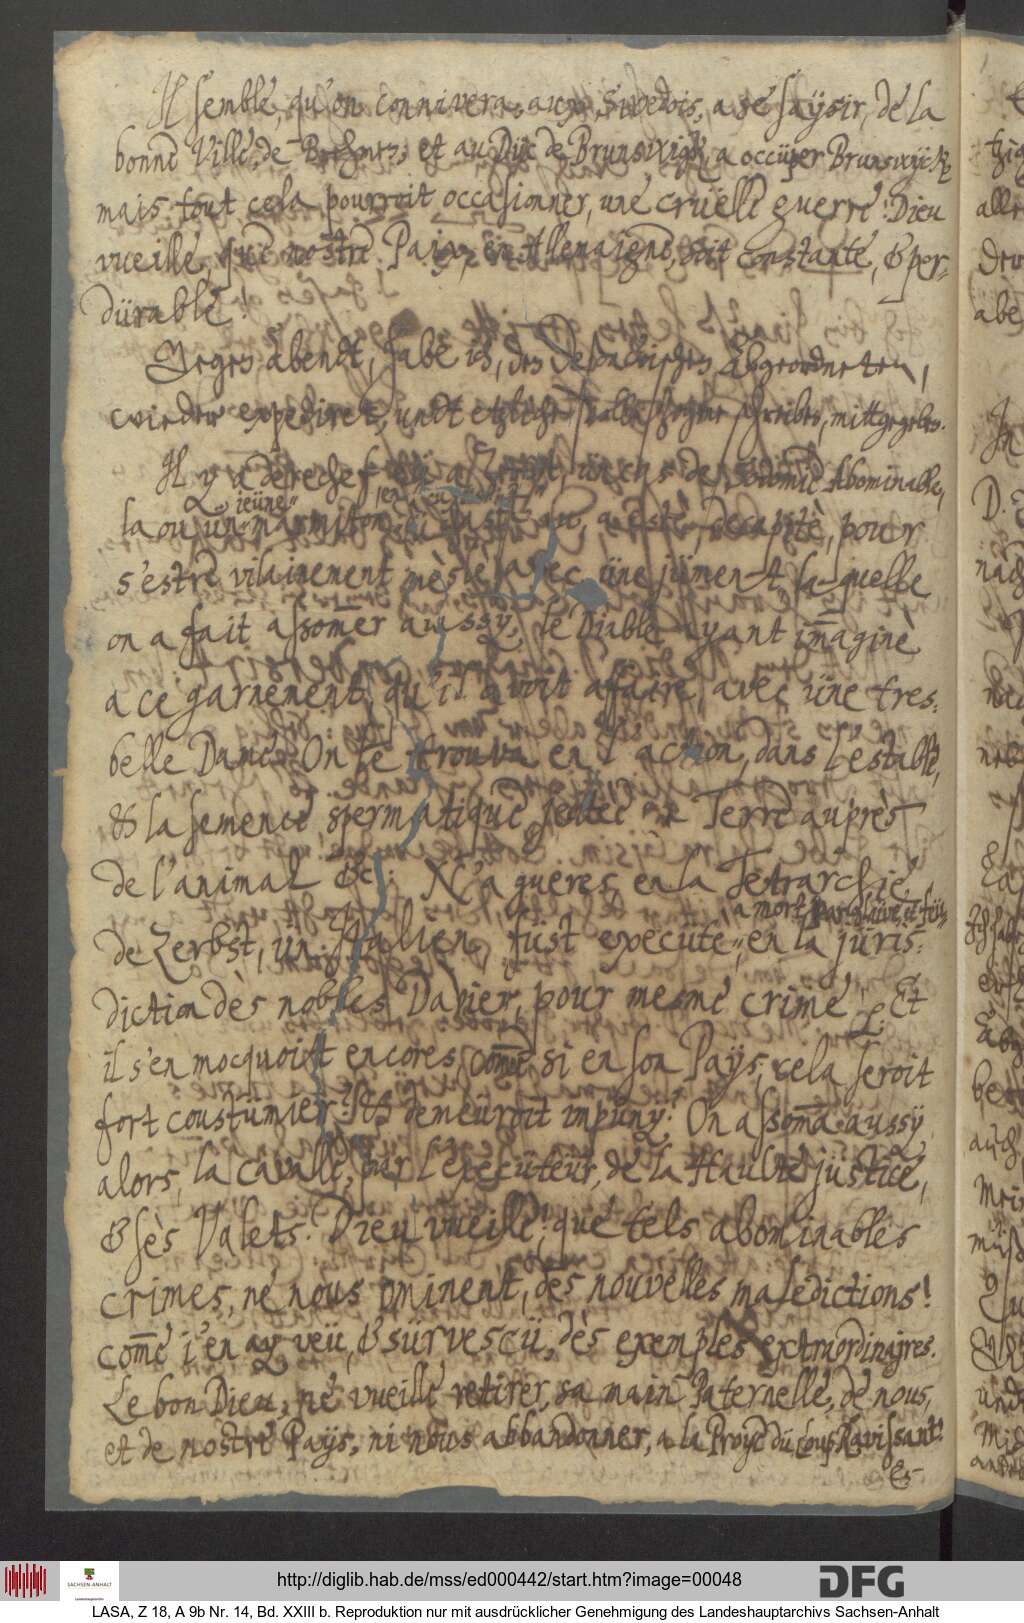 Il semble, qu'on connivera, aux Swedois, a se saÿsir, de la
bonne Ville, de Brehmen, et au Düc de Brunswigk, a occüper Brunswÿck
mais tout cela pourroit occasionner, une crüelle guerre! Dieu
vueille, que nostre Paix, en Allemaigne, soit constante, & per-
dürable!
Gegen abendt, habe ich, den Abgeordneten,
wieder expediret, undt etzliche schreiben, mittgegeben.
Il y a derechef eü a Zerbst, ün cas de Sodomie abominable,
la ou un jeüne marmiton a esté decapité, pour
s'estre vilainement meslé avec üne jüment, laquelle
on a fait assomer aussy, le Diable ayant imaginè
a ce garnement, qu'il avoit affaire, avec üne tres-
belle Dame. On le trouva en l'action, dans l'estable,
& la semence spermatique jettée en Terre auprès
de l'animal &c: N'a gueres, en la Tetrarchie
de Zerbst, ün Italien, füst execüte, a mort, par glaive, et feü, en la jüris-
diction dès nobles Davier, pour mesme crime, &c. Et
il s'en mocquoit encores, comme si en son Paÿs, cela seroit
fort coustumier, & demeüroit impüny! On assoma aussy
alors, la cavalle, par l'Execüteür, de la Haulte jüstice,
& ses Valets. Dieu vueille! que tels abominables
crimes, ne nous ominent, des nouvelles maledictions!
comme j'en ay veü, & sürvescü, dès exemples extraordinaires.
Le bon Dieu, ne vueille retirer, sa main Paternelle, de nous,
et de nostre Paÿs, ni nous abbandonner, a la Proye dü Loup Ravissant!
Es
http://diglib.hab.de/mss/ed000442/start.htm?image=00048
SACHSEN-ANHALT
DFG
LASA, Z 18, A 9b Nr. 14, Bd. XXIII b. Reproduktion nur mit ausdrücklicher Genehmigung des Landeshauptarchivs Sachsen-Anhalt